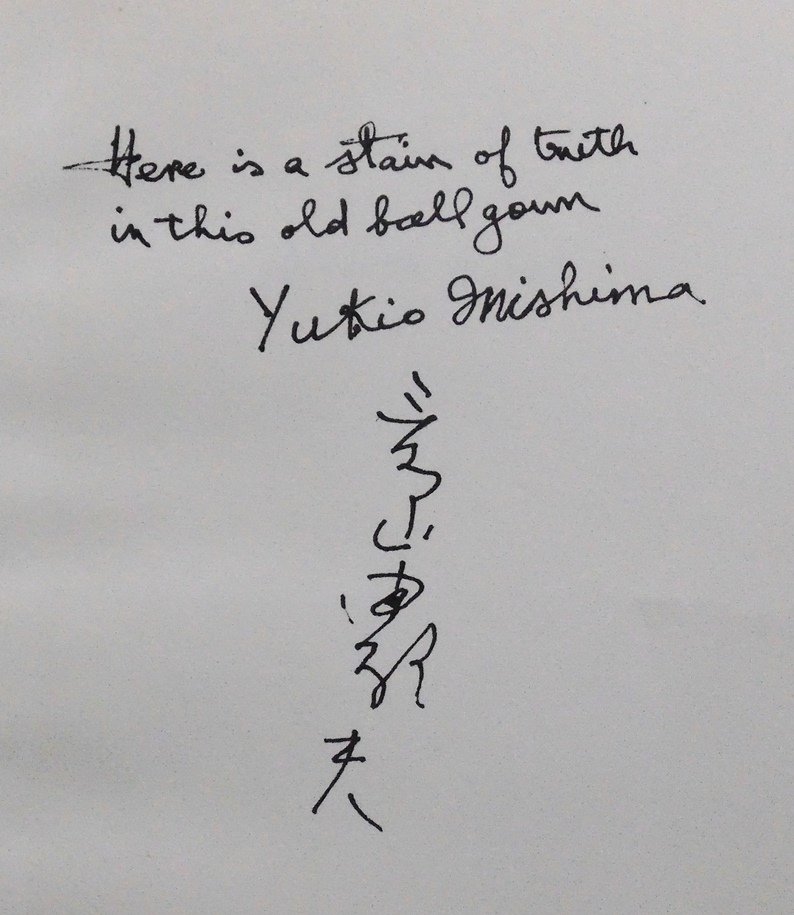 Here is a stain of truth
in this old ball gown
Yukio Mishima
三島由紀夫